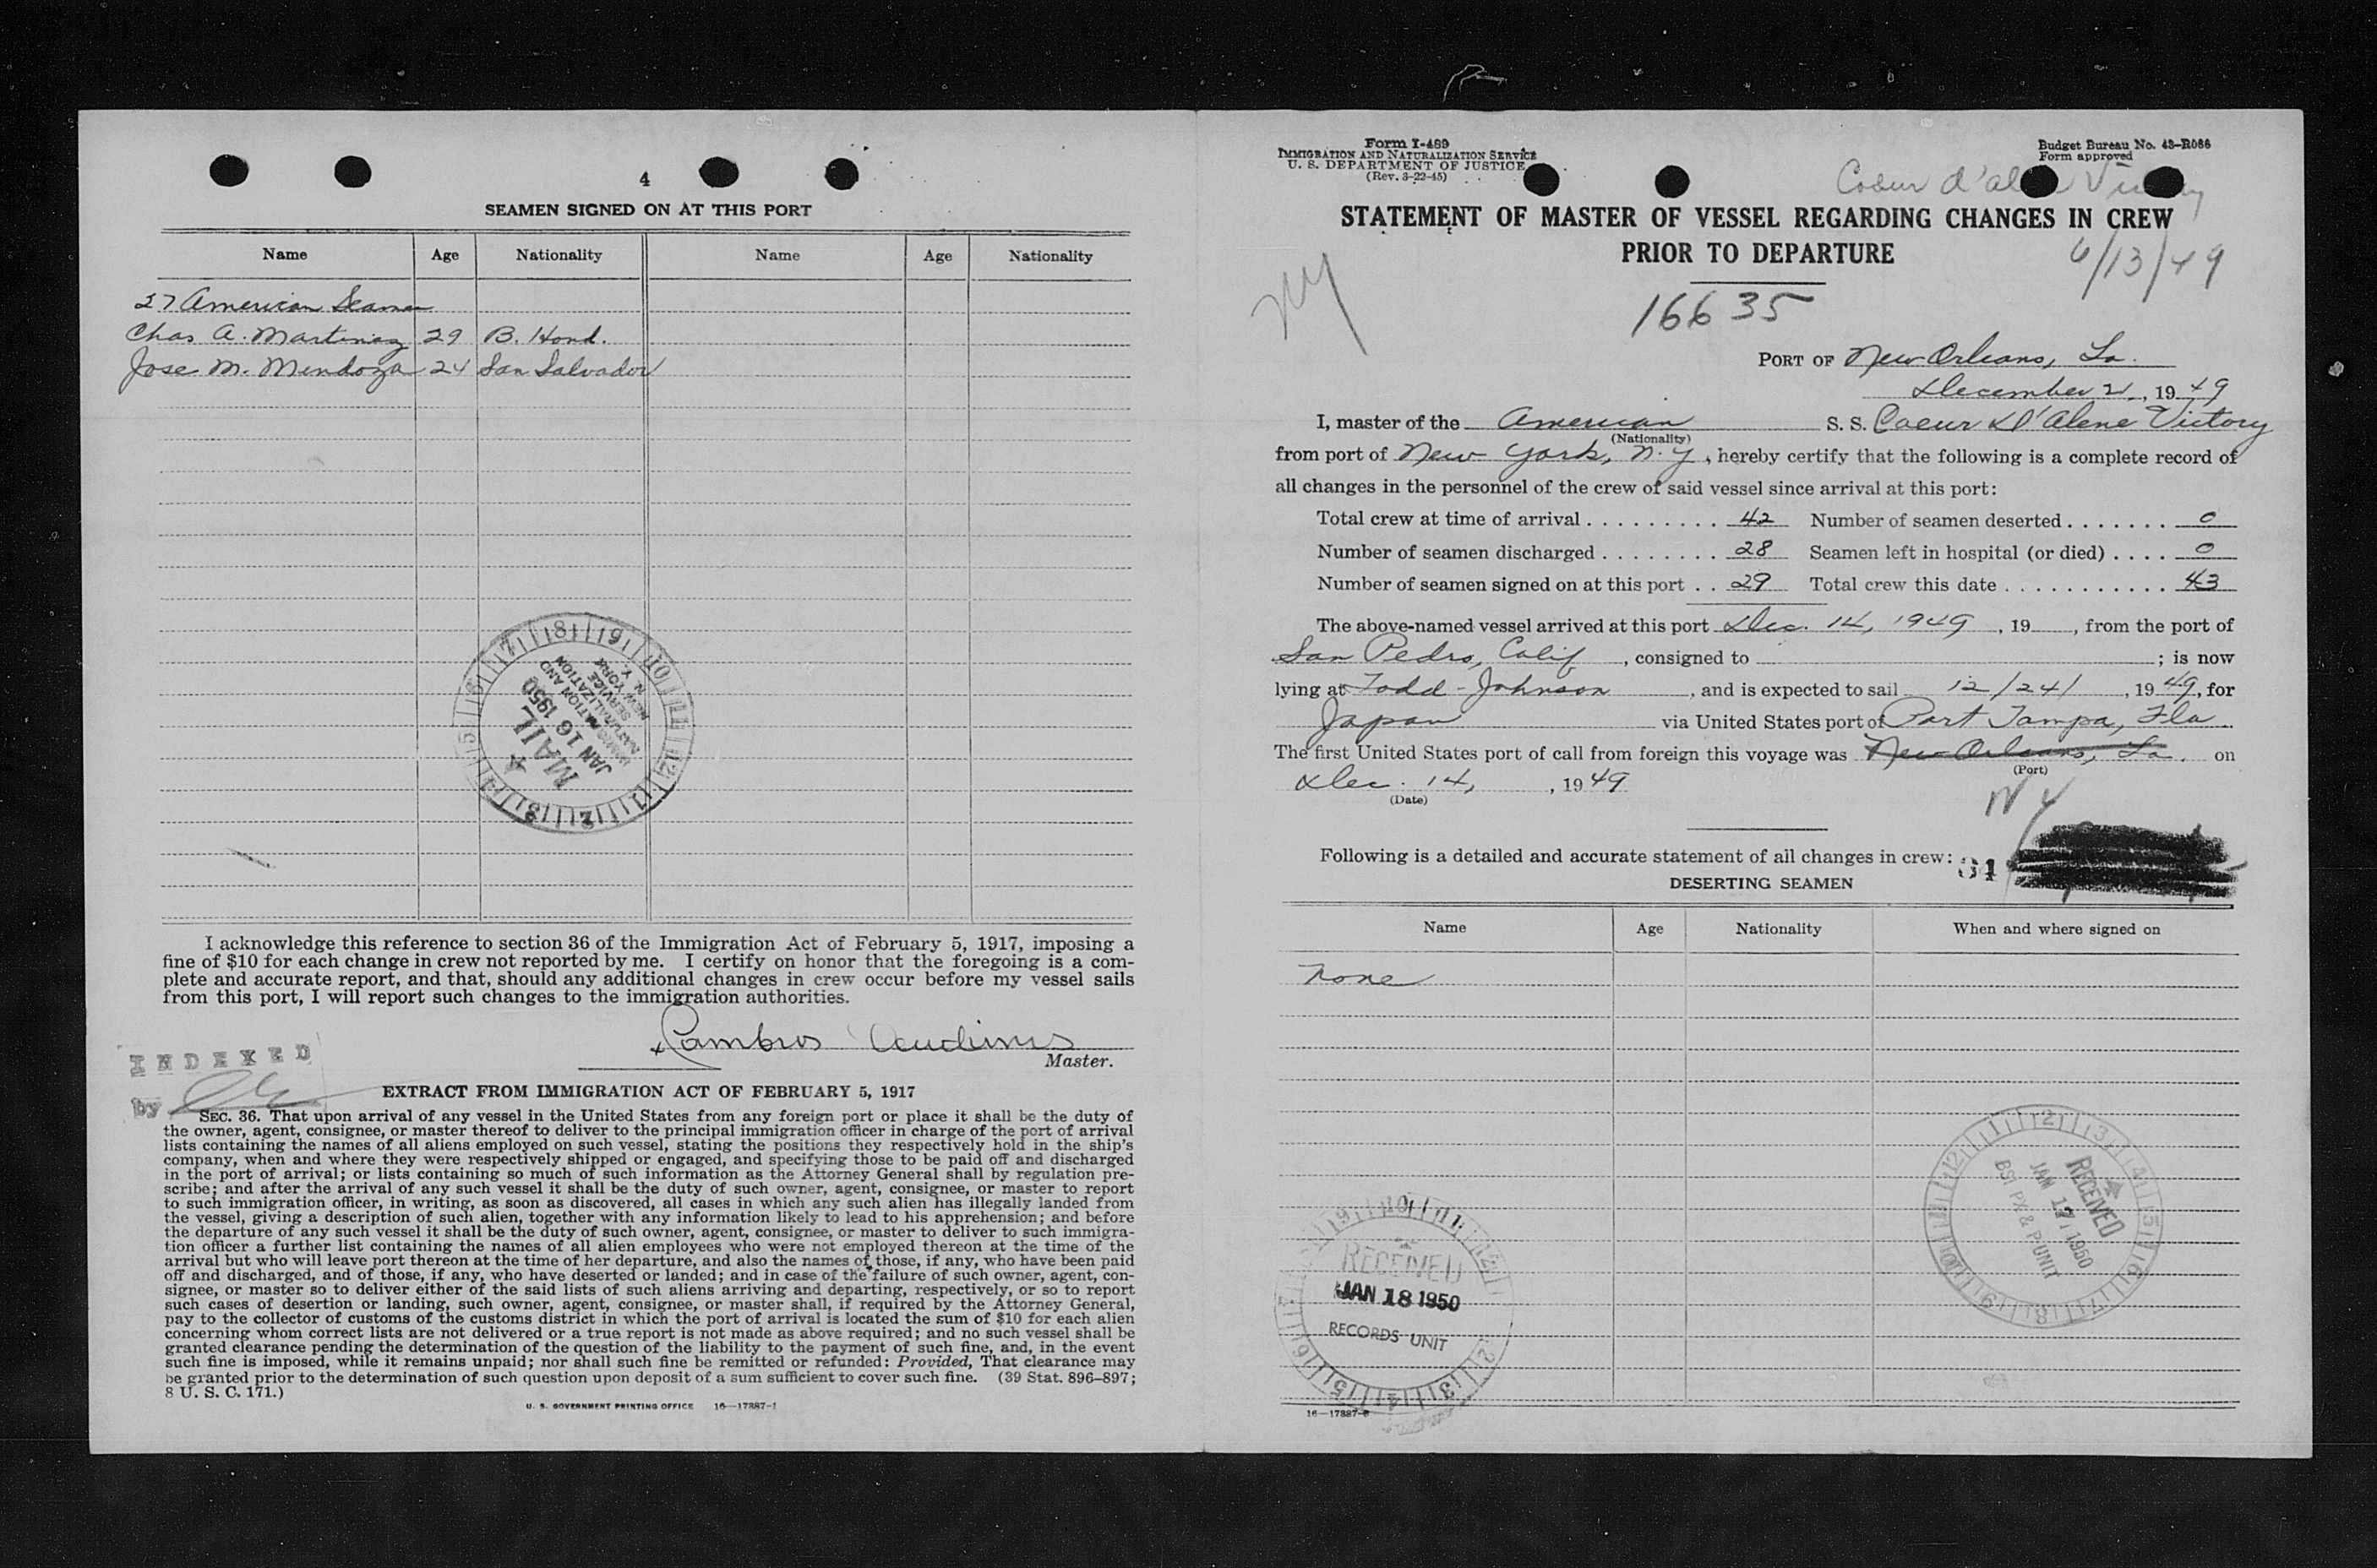 4
SEAMEN SIGNED ON AT THIS PORT
Name Age Nationality Name Age Nationality
27 American Seamen
Chas A. Martinez 29 B. Hond.
Jose M. Mendoza 24 San Salvador
7 8 9 10 11 12 1 2 3 4 5 6
IMMIGRATION AND
NATURALIZATION
SERVICE
NEW YORK
N. Y.
JAN 16 1950
MAIL
I acknowledge this reference to section 36 of the Immigration Act of February 5, 1917, imposing a
fine of $10 for each change in crew not reported by me. I certify on honor that the foregoing is a com-
plete and accurate report, and that, should any additional changes in crew occur before my vessel sails
from this port, I will report such changes to the immigration authorities.
Master.
INDEXED
by
EXTRACT FROM IMMIGRATION ACT OF FEBRUARY 5, 1917
SEC. 36. That upon arrival of any vessel in the United States from any foreign port or place it shall be the duty of
the owner, agent, consignee, or master thereof to deliver to the principal immigration officer in charge of the port of arrival
lists containing the names of all aliens employed on such vessel, stating the positions they respectively hold in the ship's
company, when and where they were respectively shipped or engaged, and specifying those to be paid off and discharged
in the port of arrival; or lists containing so much of such information as the Attorney General shall by regulation pre-
scribe; and after the arrival of any such vessel it shall be the duty of such owner, agent, consignee, or master to report
to such immigration officer, in writing, as soon as discovered, all cases in which any such alien has illegally landed from
the vessel, giving a description of such alien, together with any information likely to lead to his apprehension; and before
the departure of any such vessel it shall be the duty of such owner, agent, consignee, or master to deliver to such immigra-
tion officer a further list containing the names of all alien employees who were not employed thereon at the time of the
arrival but who will leave port thereon at the time of her departure, and also the names of those, if any, who have been paid
off and discharged, and of those, if any, who have deserted or landed; and in case of the failure of such owner, agent, con-
signee, or master so to deliver either of the said lists of such aliens arriving and departing, respectively, or so to report
such cases of desertion or landing, such owner, agent, consignee, or master shall, if required by the Attorney General,
pay to the collector of customs of the customs district in which the port of arrival is located the sum of $10 for each alien
concerning whom correct lists are not delivered or a true report is not made as above required; and no such vessel shall be
granted clearance pending the determination of the question of the liability to the payment of such fine, and, in the event
such fine is imposed, while it remains unpaid; nor shall such fine be remitted or refunded: Provided, That clearance may
be granted prior to the determination of such question upon deposit of a sum sufficient to cover such fine. (39 Stat. 896–897;
8 U. S. C. 171.)
U. S. GOVERNMENT PRINTING OFFICE 16—17887-1
Form I-489
IMMIGRATION AND NATURALIZATION SERVICE
U. S. DEPARTMENT OF JUSTICE
(Rev. 3-22-45)
Budget Bureau No. 43–R086
Form approved
Coeur d'alene Victory
STATEMENT OF MASTER OF VESSEL REGARDING CHANGES IN CREW
PRIOR TO DEPARTURE
6/13/49
NY
16635
PORT OF New Orleans, La.
December 21, 1949
I, master of the American S. S. Coeur D'Alene Victory
(Nationality)
from port of New York, N.Y., hereby certify that the following is a complete record of
all changes in the personnel of the crew of said vessel since arrival at this port:
Total crew at time of arrival . . . . . . . . . 42 Number of seamen deserted . . . . . . . 0
Number of seamen discharged . . . . . . . . 28 Seamen left in hospital (or died) . . . . 0
Number of seamen signed on at this port . . 29 Total crew this date . . . . . . . . . . . 43
The above-named vessel arrived at this port Dec. 14, 1949, 19 , from the port of
San Pedro, Calif, consigned to ; is now
lying at Todd-Johnson, and is expected to sail 12/24/, 1949, for
Japan via United States port of Port Tampa, Fla
The first United States port of call from foreign this voyage was New Orleans, La. on
(Port)
Dec. 14, 1949
(Date)
NY
Following is a detailed and accurate statement of all changes in crew:
DESERTING SEAMEN
Name Age Nationality When and where signed on
None
RECEIVED
JAN 17 1950
BSI PX & P UNIT
RECEIVED
JAN 18 1950
RECORDS UNIT